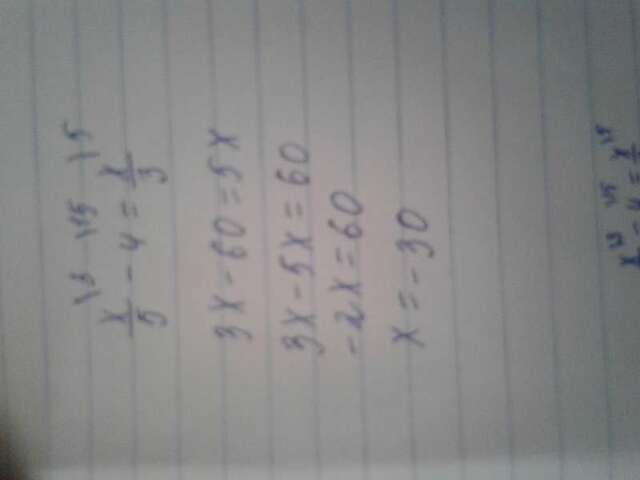 x/5 \3 - 4 \15 = x/3 \5
3x - 60 = 5x
3x - 5x = 60
-2x = 60
x = -30
x \3 - 4 \15 = x \5